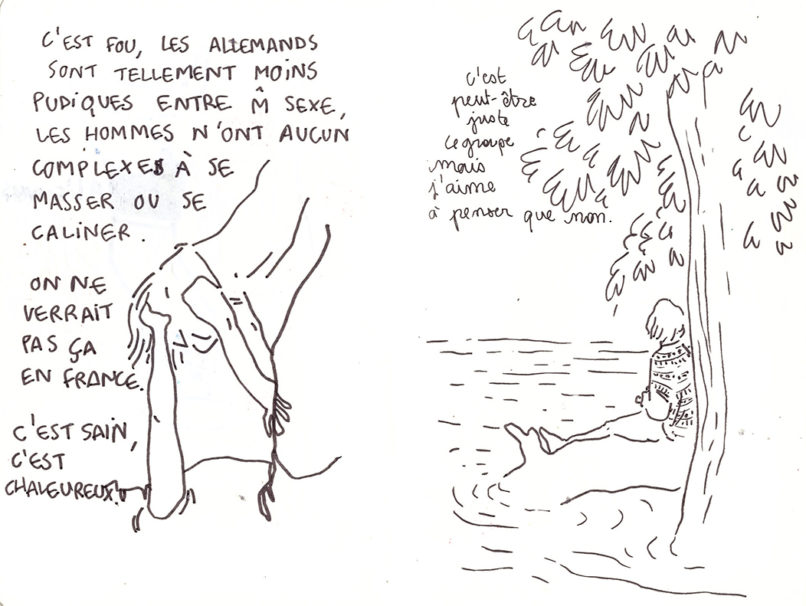 C'EST FOU, LES ALLEMANDS
SONT TELLEMENT MOINS
PUDIQUES ENTRE M̂ SEXE,
LES HOMMES N'ONT AUCUN
COMPLEXES À SE
MASSER OU SE
CALINER.
ON NE
VERRAIT
PAS ÇA
EN FRANCE.
C'EST SAIN,
C'EST
CHALEUREUX.
c'est
peut-être
juste
ce groupe
mais
j'aime
à penser que non.